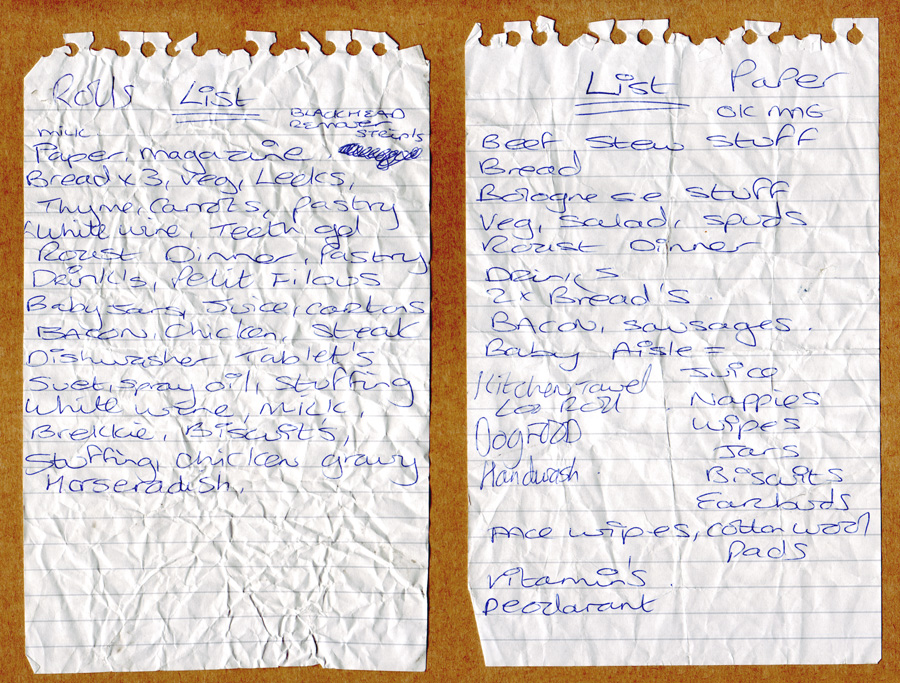 Rolls List
BLACKHEAD
REMOVER
STRIPS
milk
Paper, magazine,
Bread x 3, Veg, Leeks,
Thyme, Carrots, Pastry
White wine, Teeth gel
Roast Dinner, Pastry
Drinks, Petit Filous
Baby Jars, Juice, cartons
BACON, Chicken, Steak
Dishwasher Tablet's
Suet, spray oil, stuffing
White wine, Milk,
Brekkie, Biscuits,
Stuffing, chicken gravy
Horseradish,
List Paper
OK MG
Beef Stew Stuff
Bread
Bolognese Stuff
Veg, salad, spuds
Roast Dinner
Drinks
2 x Bread's
BACON, sausages.
Baby Aisle =
Juice
Nappies
Wipes
Jars
Biscuits
Earbuds
Kitchen Towel
Loo Roll
Dog FOOD
Handwash
Face wipes, cotton wool
Pads
Vitamins
Deodarant